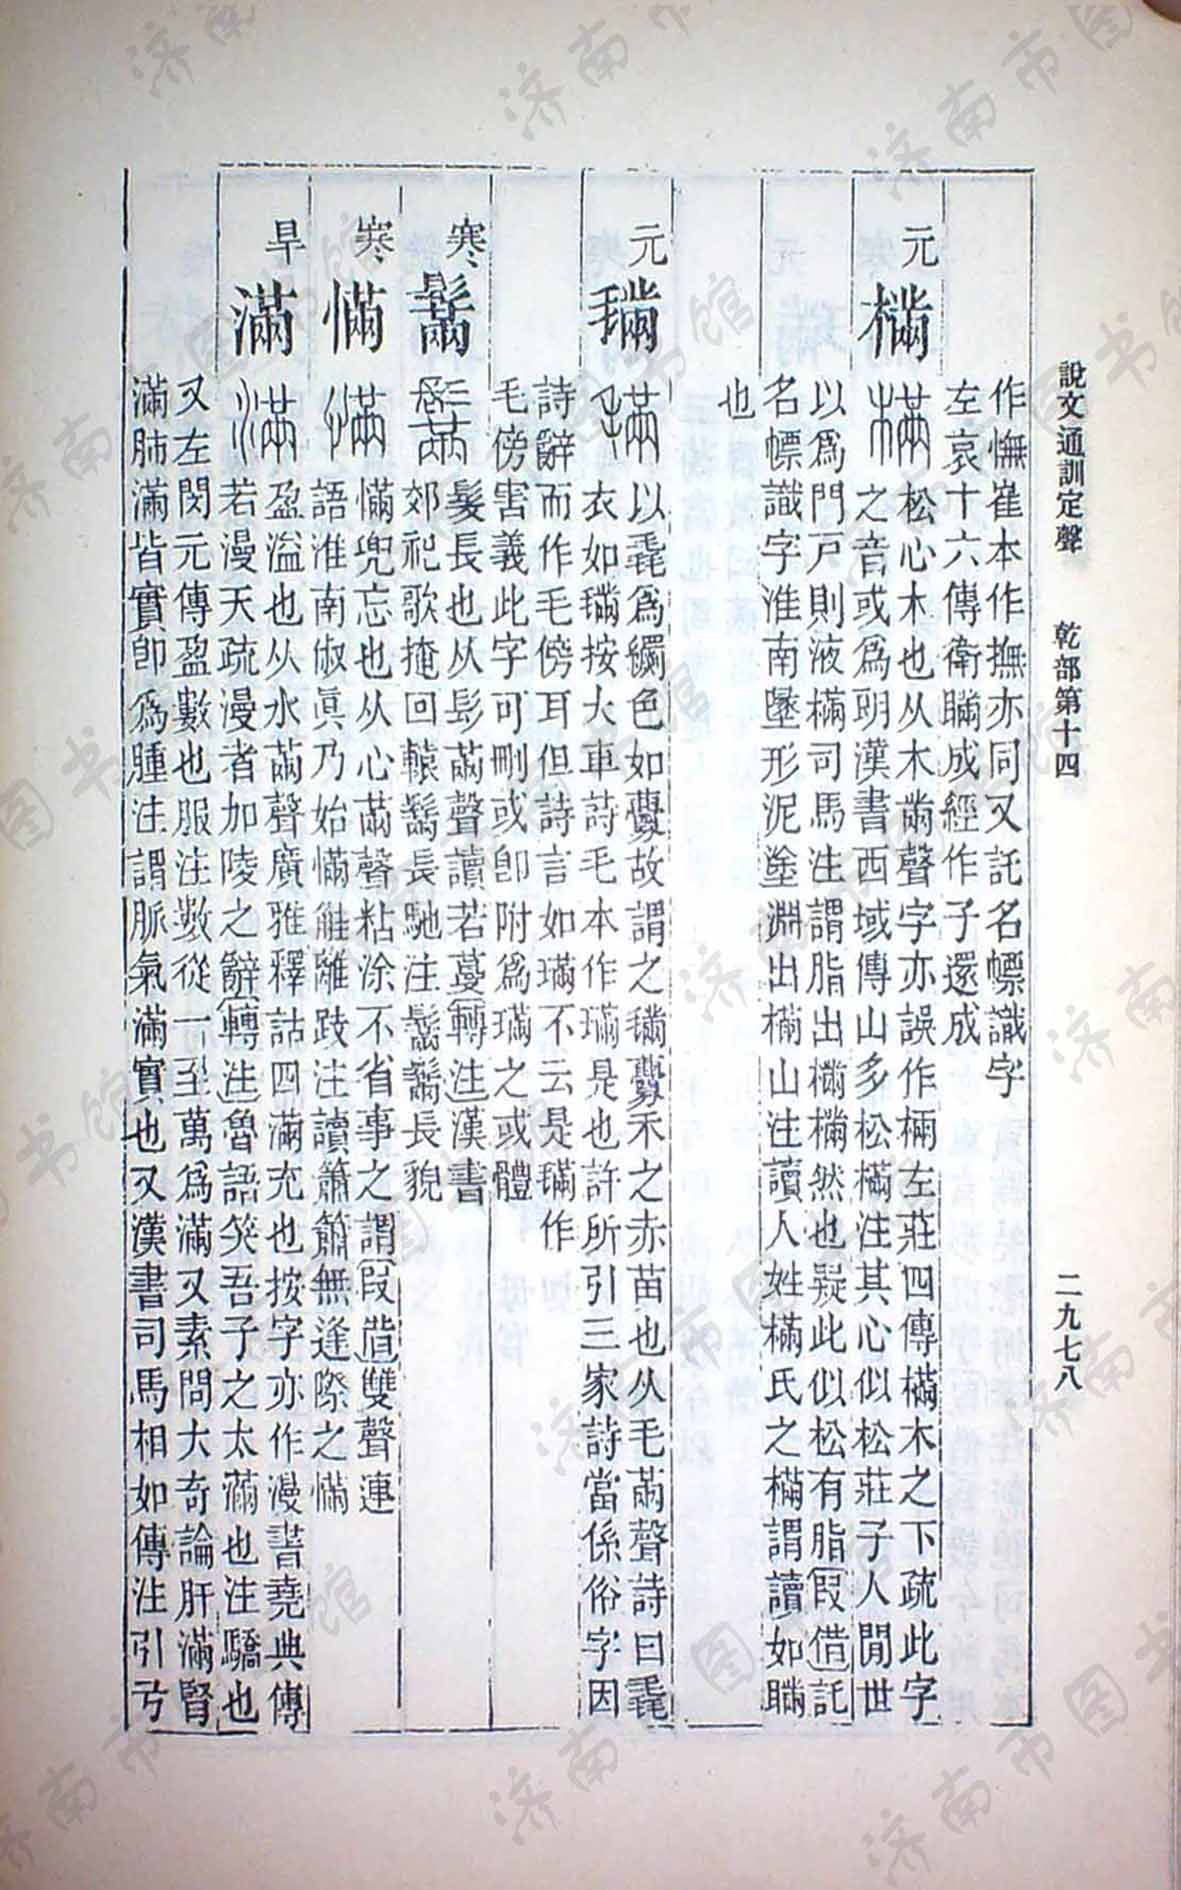 說文通訓定聲　乾部第十四　二九七八
作憮崔本作撫亦同又託名幖識字
左哀十六傳衛瞞成經作子還成
元　樠　松心木也从木㒼聲字亦誤作樠左莊四傳樠木之下疏此字
之音或爲朗漢書西域傳山多松樠注其心似松莊子人閒世
以爲門戸則液樠司馬注謂脂出樠樠然也疑此似松有脂叚借託
名幖識字淮南墬形泥塗淵出樠山注讀人姓樠氏之樠謂讀如瞞
也
元　𣯩　以毳爲繝色如虋故謂之𣯩虋禾之赤苗也从毛㒼聲詩曰毳
衣如𣯩按大車詩毛本作璊是也許所引三家詩當係俗字因
詩辭而作毛傍耳但詩言如璊不云是璊作
毛傍害義此字可刪或卽附爲璊之或體
寒　鬗　髮長也从髟㒼聲讀若蔓轉注漢書
郊祀歌掩回轅鬗長馳注鬗鬗長貌
寒　慲　慲兜忘也从心㒼聲粘涂不省事之謂叚借雙聲連
語淮南俶眞乃始慲觟離跂注讀簫簫無逢際之慲
旱　滿　盈溢也从水㒼聲廣雅釋詁四滿充也按字亦作漫書堯典傳
若漫天疏漫者加陵之辭轉注魯語笑吾子之太滿也注驕也
又左閔元傳盈數也服注數從一至萬爲滿又素問大奇論肝滿腎
滿肺滿皆實卽爲腫注謂脈氣滿實也又漢書司馬相如傳注引㫄
济南市图书馆